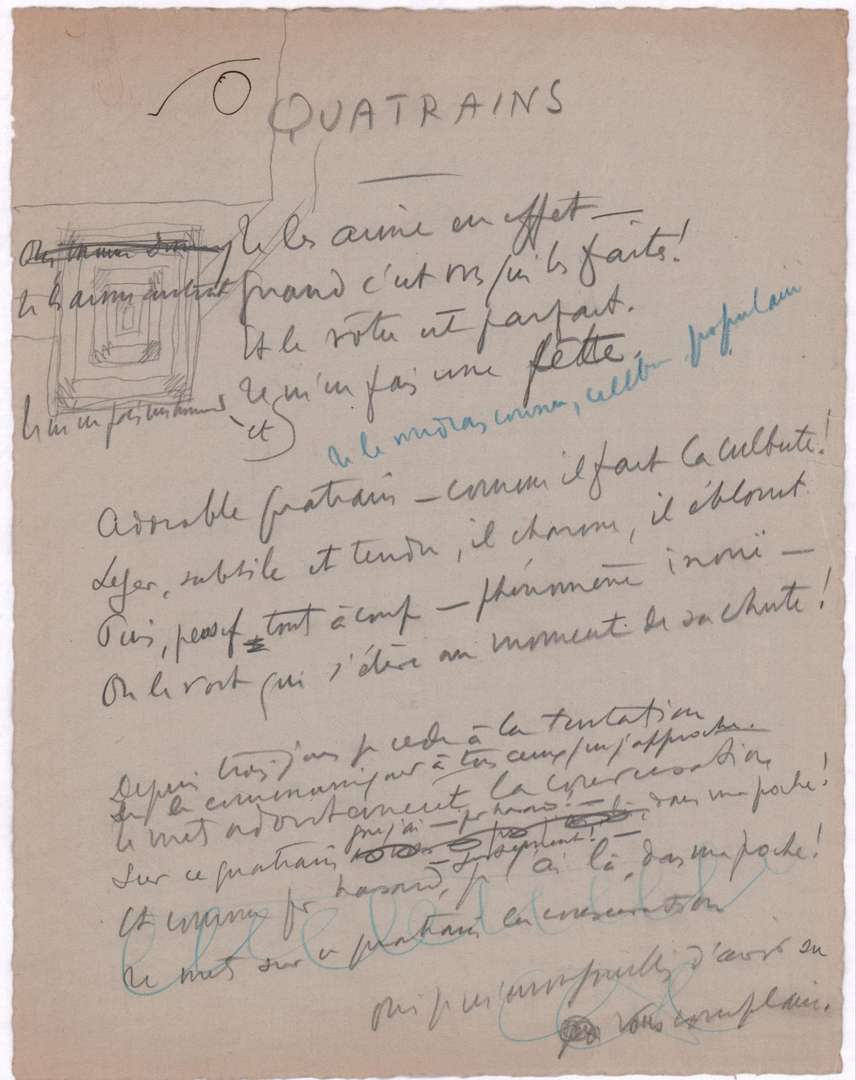 QUATRAINS
Je les aime en effet —
Quand c'est vs qui les faites!
Je les aime
Et le vôtre est parfait.
Je m'en fais une fête.
Je m'en fais
et
Je le voudrais connu, célèbre, populaire
Adorable quatrain — comme il fait la culbute!
Léger, subtile et tendre, il charme, il éblouit
Puis, pensif, tout à coup — phénomène inouï —
On le voit qui s'élève au moment de sa chute!
Depuis trois jours je cède à la tentation
De le communiquer à tous ceux que j'approche.
Je mets adroitement la conversation
que j'ai — par hasard —
Sur ce quatrain là, dans ma poche!
— justement! —
Et comme par hasard, j'ai là, dans ma poche!
Je mets sur ce quatrain la conversation
Oui je m'enorgueillis d'avoir su
vous complaire.